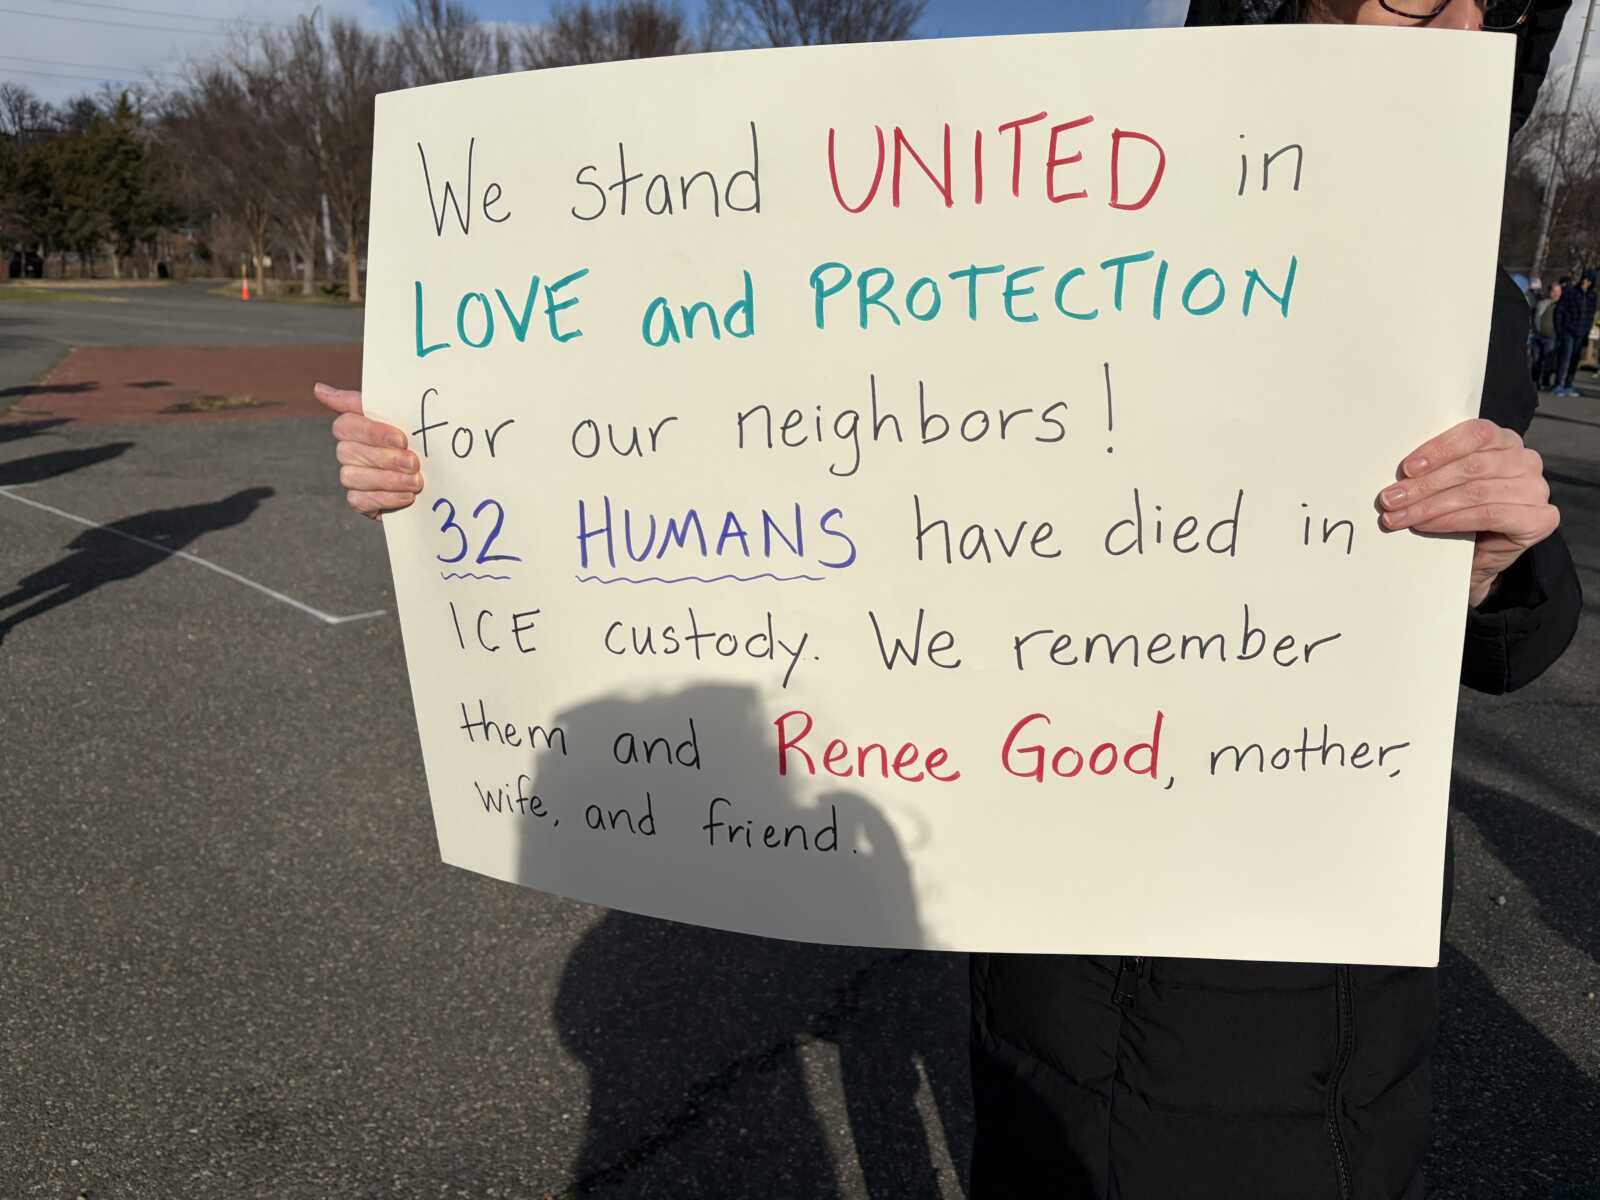 We stand UNITED in
LOVE and PROTECTION
for our neighbors!
32 HUMANS have died in
ICE custody. We remember
them and Renee Good, mother,
wife, and friend.